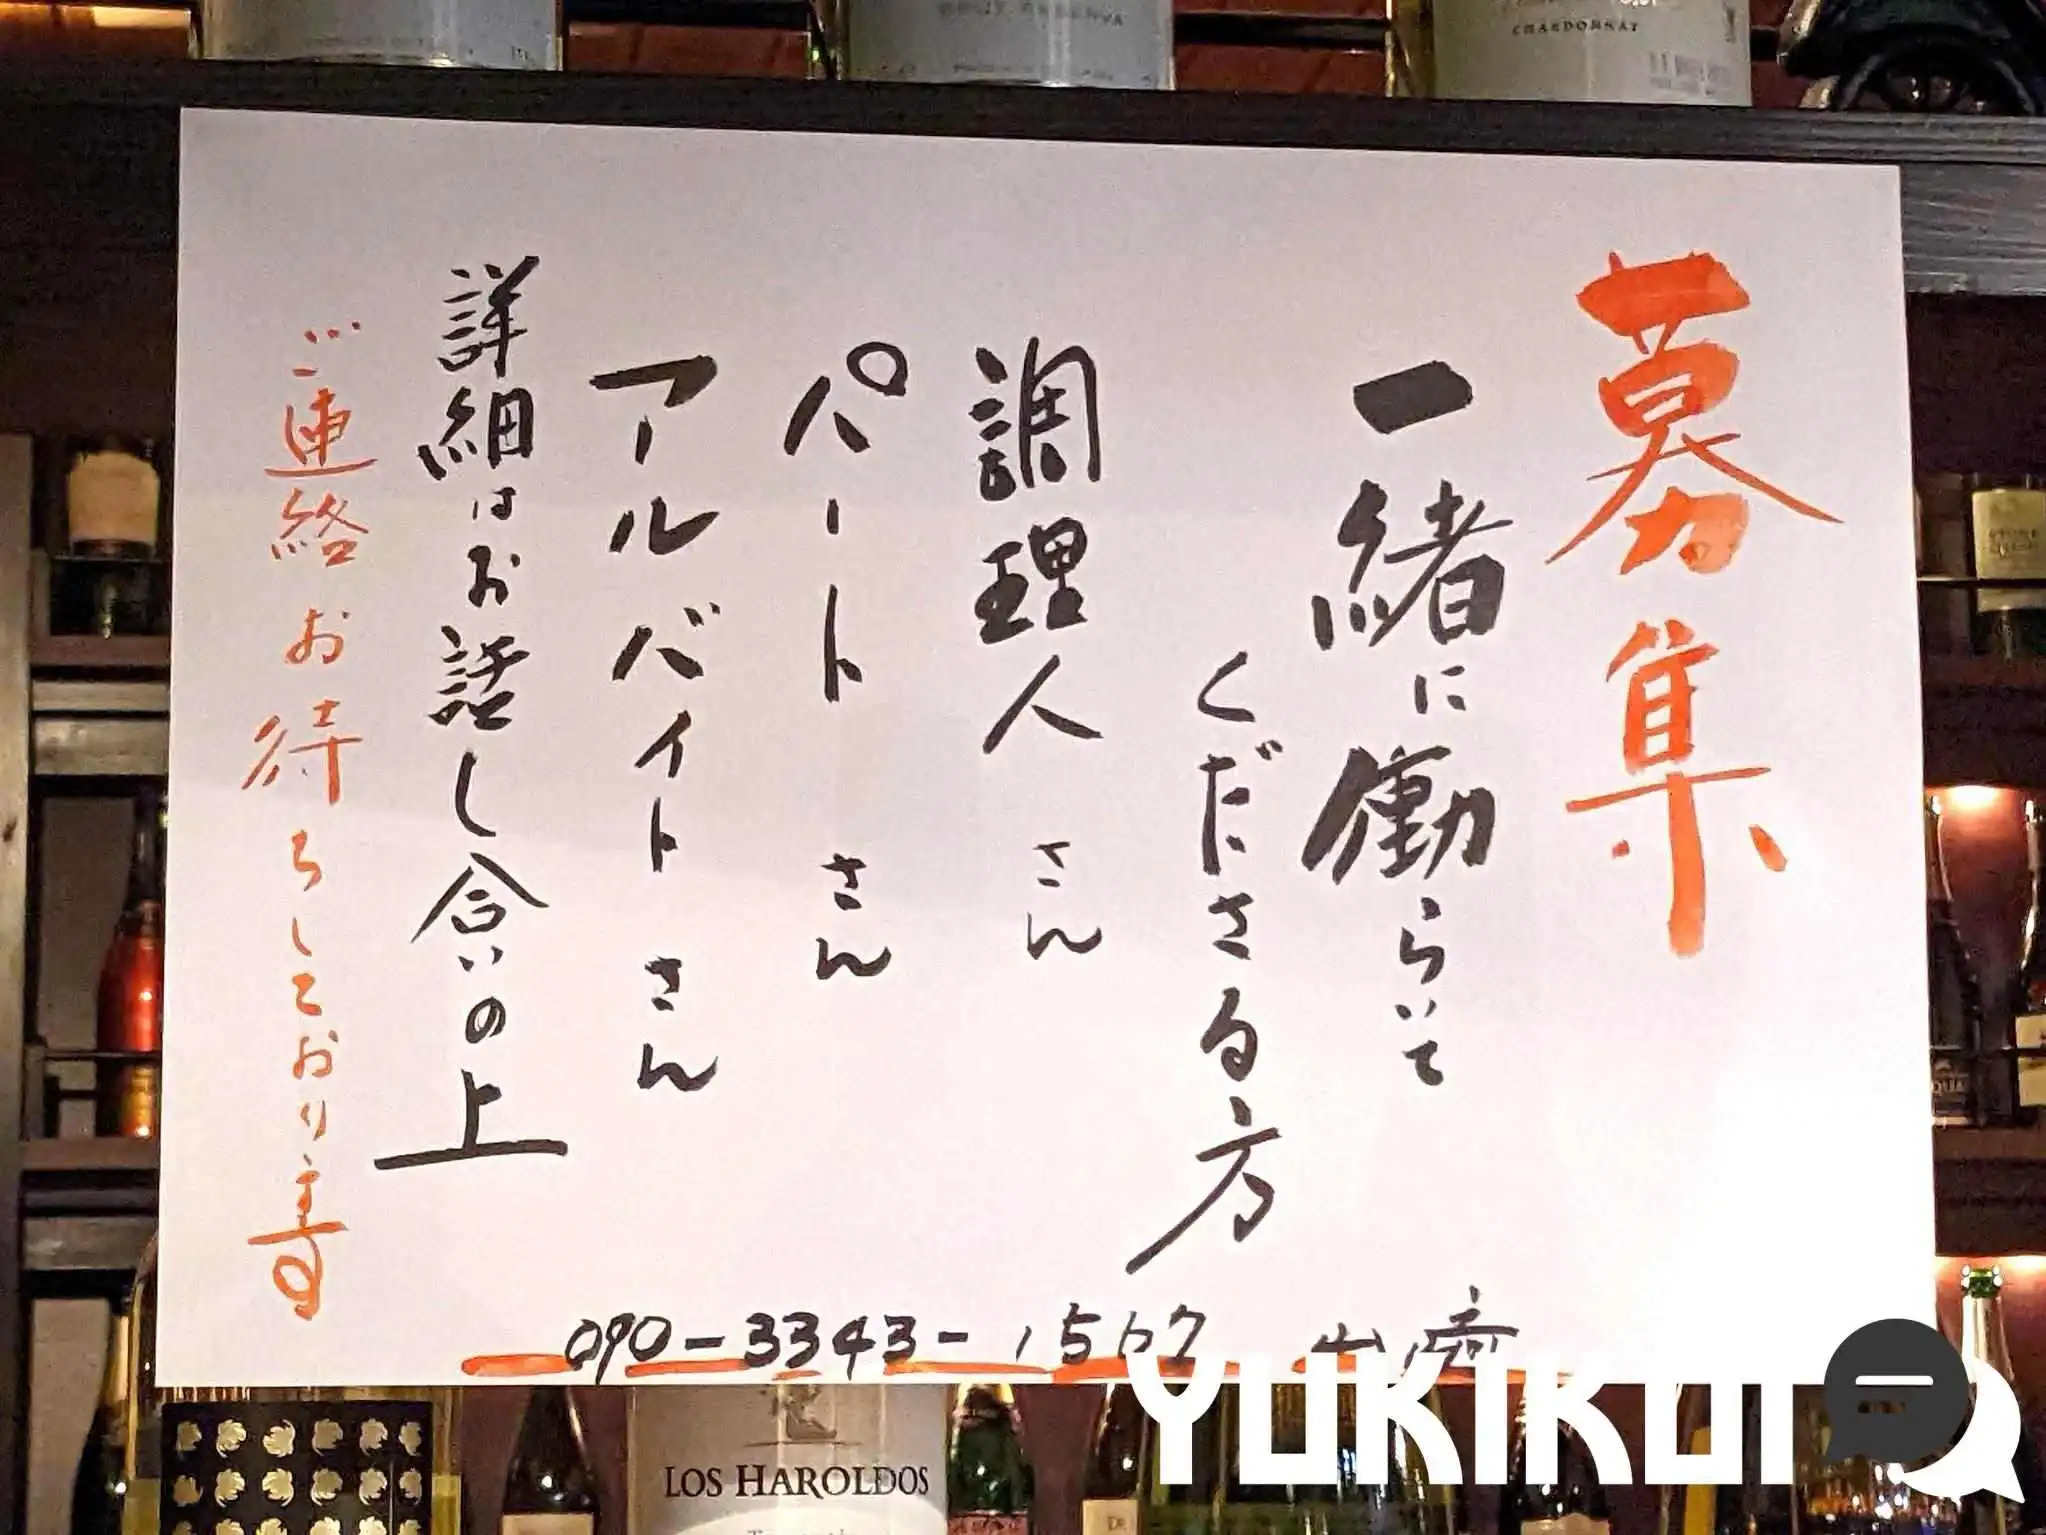 募集
一緒に働らいて
くださる方
調理人 さん
パート さん
アルバイト さん
詳細はお話し合いの上
ご連絡お待ちしております
090-3343-1567 山﨑
CHARDONNAY
LOS HAROLDOS
YUKIKOI